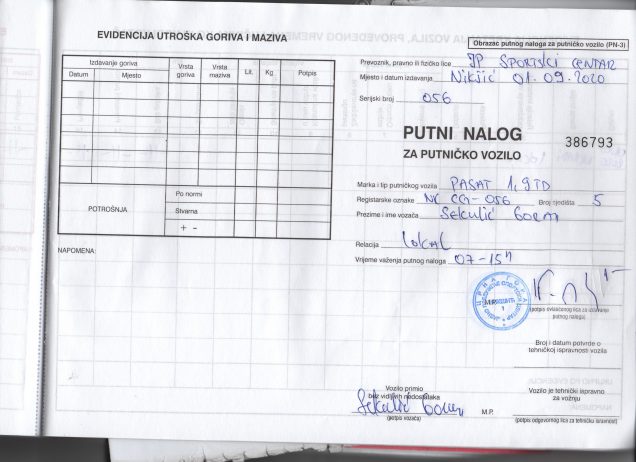 EVIDENCIJA UTROŠKA GORIVA I MAZIVA
Izdavanje goriva
Datum
Mjesto
Vrsta goriva
Vrsta maziva
Lit.
Kg
Potpis
POTROŠNJA
Po normi
Stvarna
+ -
NAPOMENA:
Obrazac putnog naloga za putničko vozilo (PN-3)
Prevoznik, pravno ili fizičko lice JP SPORTSKI CENTAR
Mjesto i datum izdavanja Nikšić 01.09.2020
Serijski broj 056
PUTNI NALOG
386793
ZA PUTNIČKO VOZILO
Marka i tip putničkog vozila PASAT 1,9TD
Registarske oznake NK CG-056 Broj sjedišta 5
Prezime i ime vozača Sekulić
Relacija LOKAL
Vrijeme važenja putnog naloga 07-15h
M.P.
(potpis ovlašćenog lica za izdavanje
putnog naloga)
Broj i datum potvrde o
tehničkoj ispravnosti vozila
Vozilo primio
bez vidljivih nedostataka
Sekulić
(potpis vozača)
M.P.
Vozilo je tehnički ispravno
za vožnju
(potpis odgovornog lica za tehničku ispravnost)